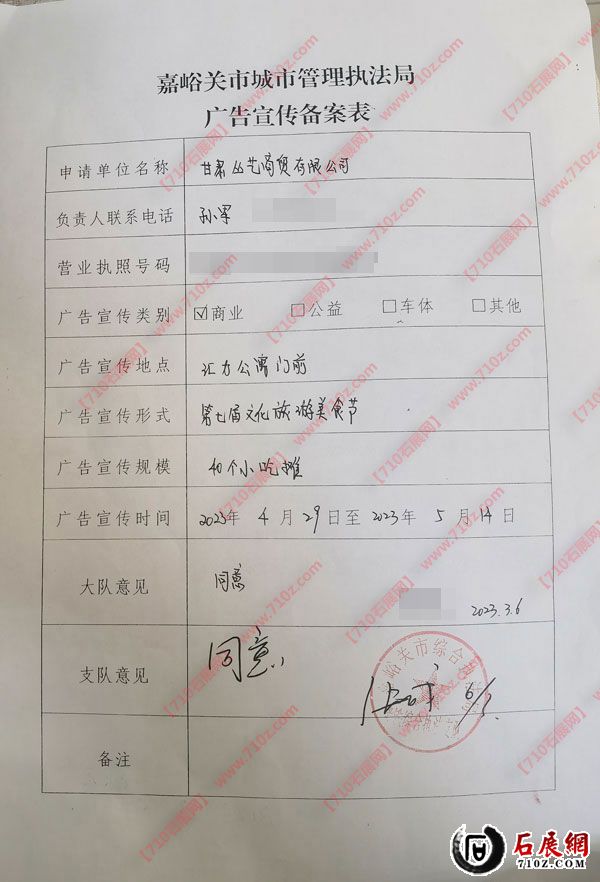 嘉峪关市城市管理执法局
广告宣传备案表
申请单位名称 甘肃丛艺商贸有限公司
负责人联系电话 孙军
营业执照号码
广告宣传类别 ☑商业 □公益 □车体 □其他
广告宣传地点 汇力公寓门前
广告宣传形式 第七届文化旅游美食节
广告宣传规模 40个小吃摊
广告宣传时间 2023年 4 月 29 日至 2023年 5 月 14 日
大队意见 同意
2023.3.6
支队意见 同意
峪关市综合
6/3
备注
【710石展网】www.710z.com
石展網
710Z.COM